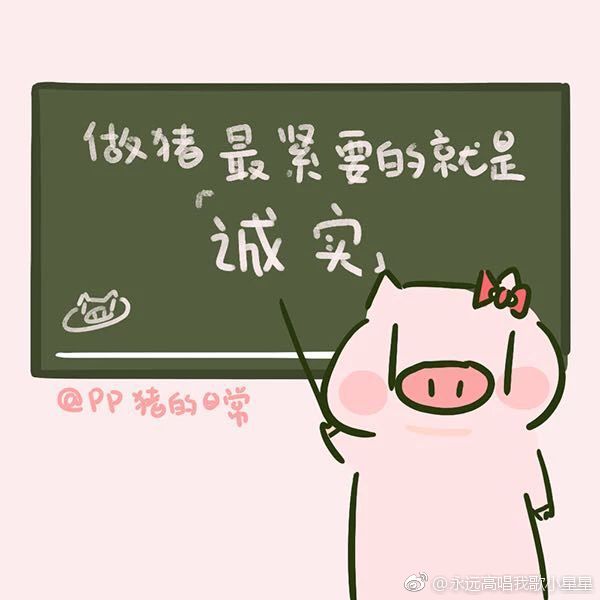 做猪最紧要的就是
「诚实」
@PP猪的日常
@永远高唱我歌小星星